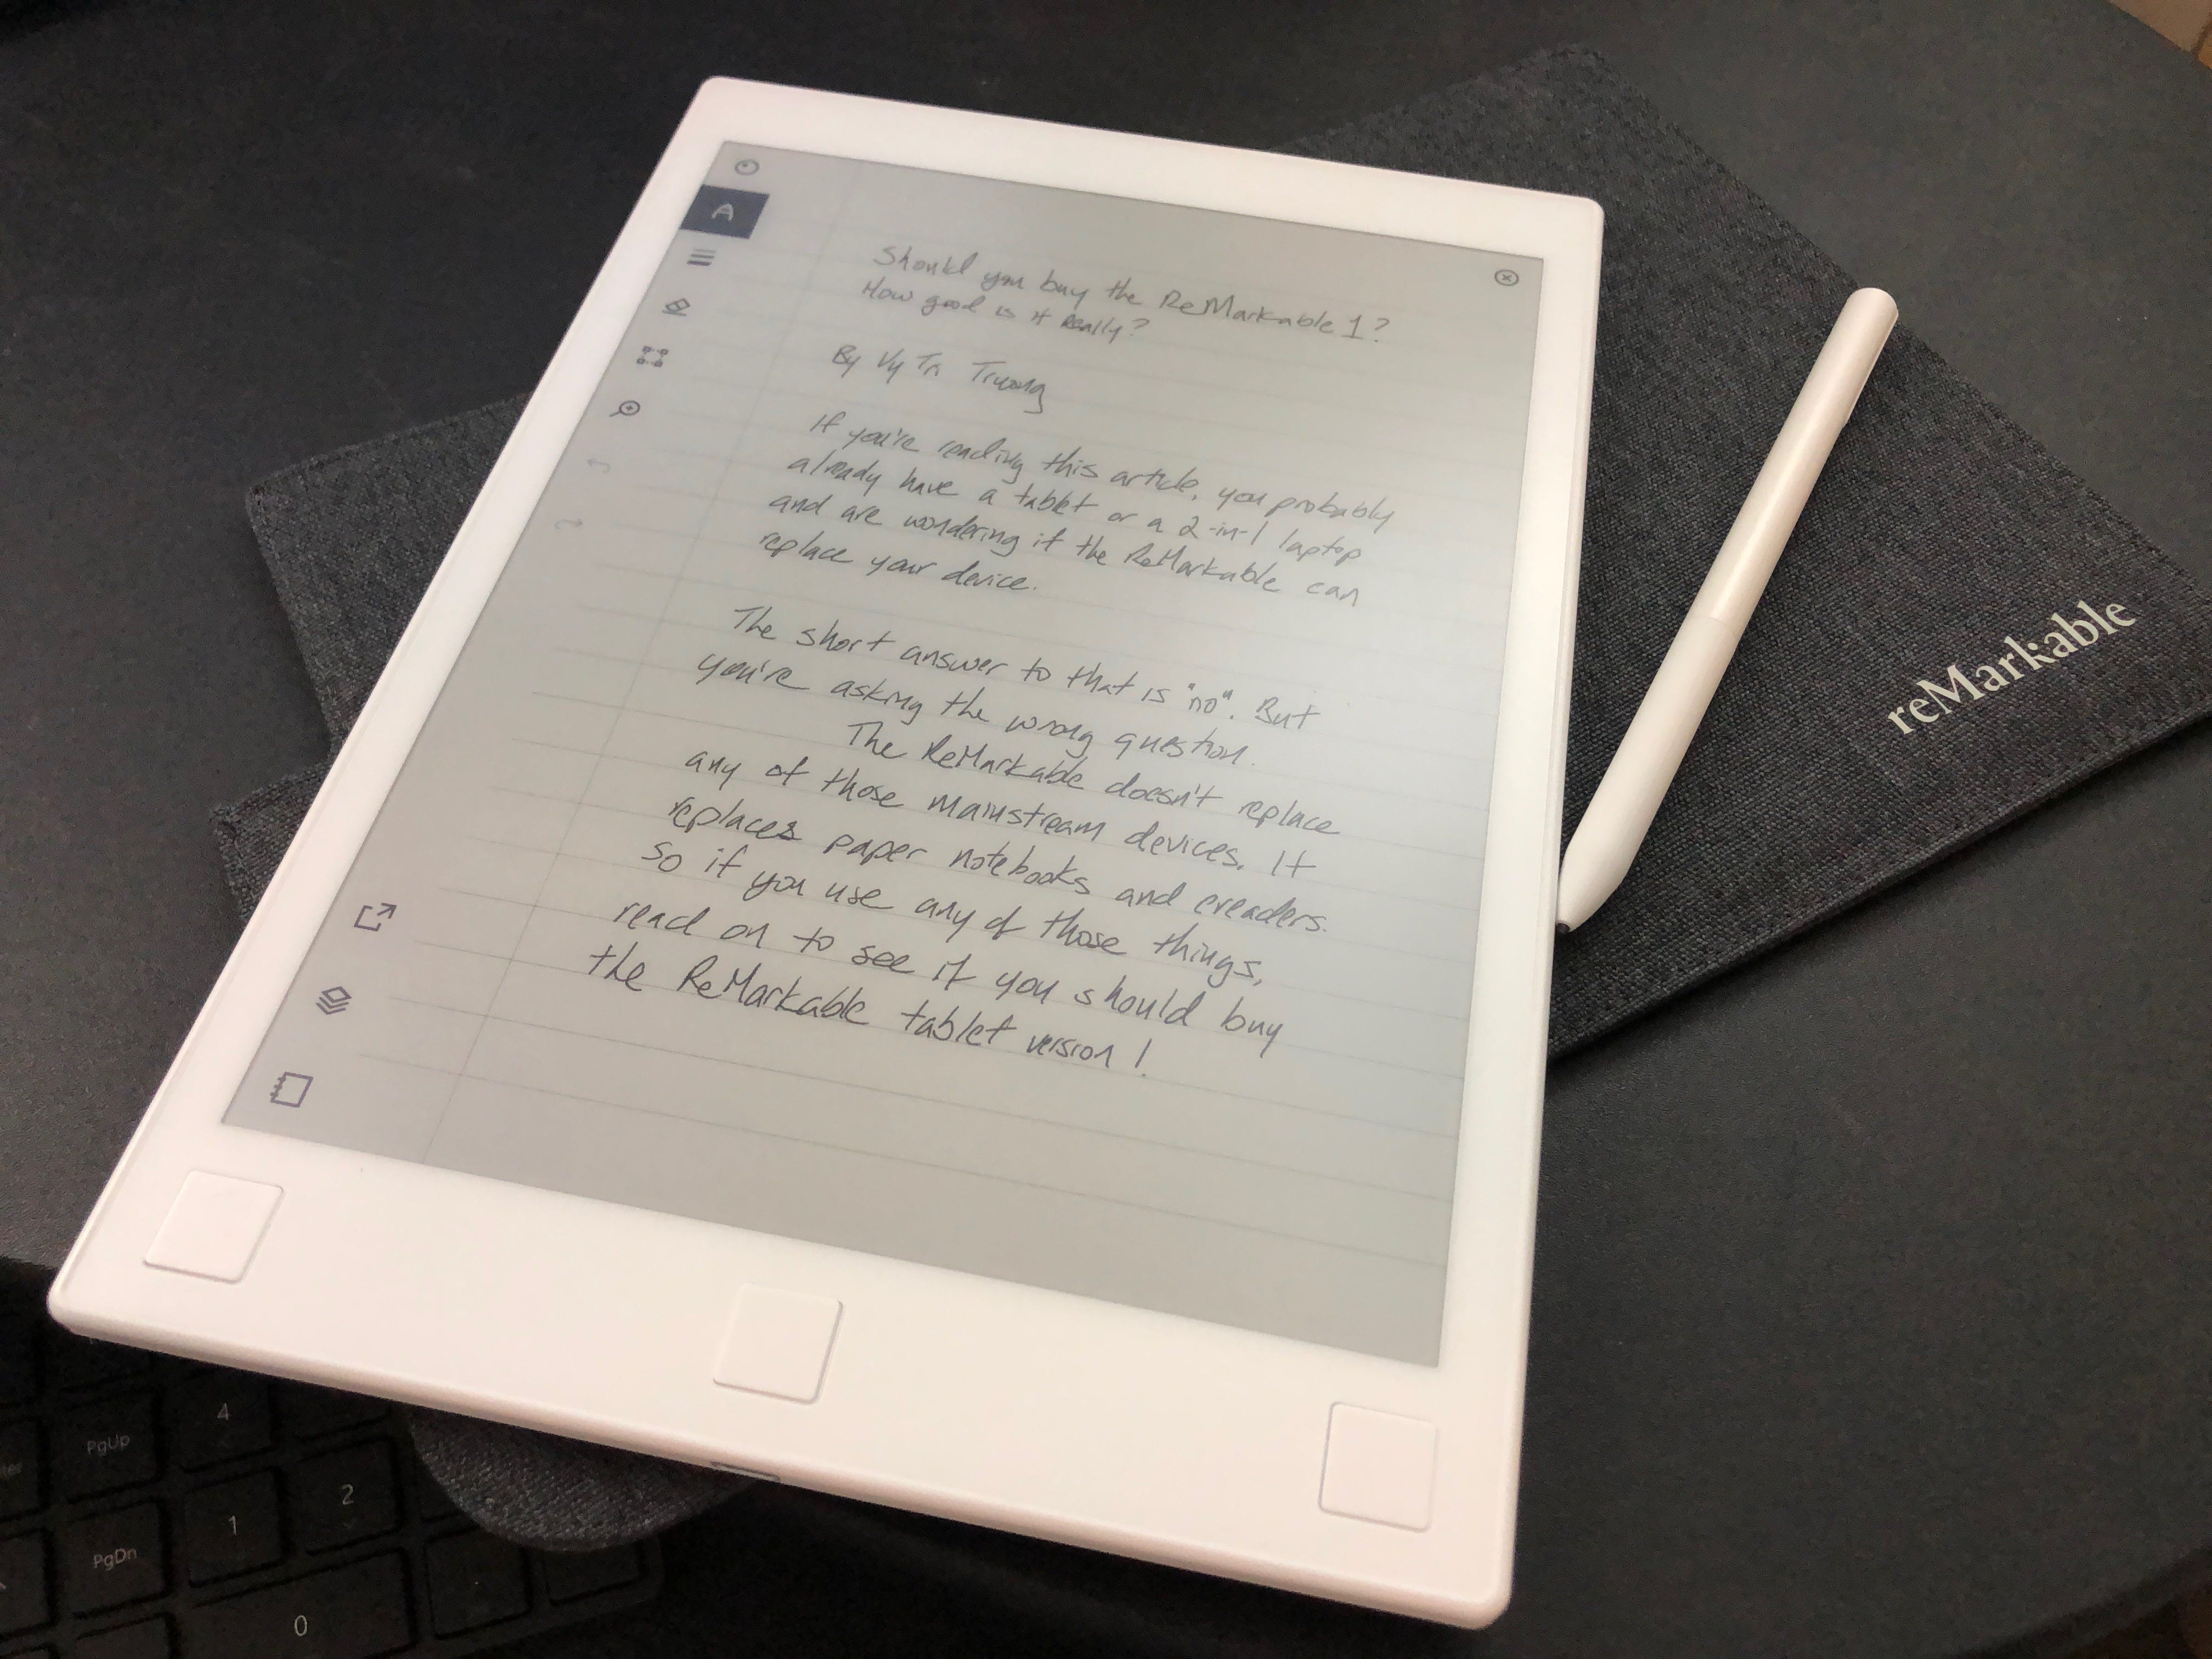 Should you buy the ReMarkable 1?
How good is it really?
By Vy Tri Truong
If you're reading this article, you probably
already have a tablet or a 2-in-1 laptop
and are wondering if the ReMarkable can
replace your device.
The short answer to that is "no". But
you're asking the wrong question.
The ReMarkable doesn't replace
any of those mainstream devices. It
replaces paper notebooks and ereaders.
So if you use any of those things,
read on to see if you should buy
the ReMarkable tablet version!
reMarkable
PgUp
4
PgDn
1
2
0